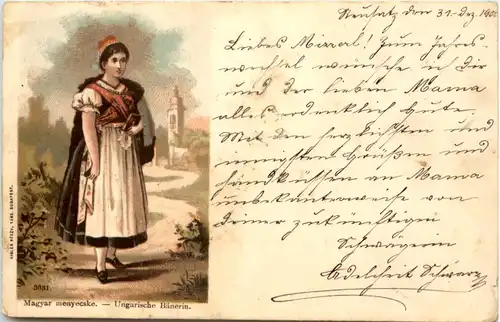 Neusatz den 31. Dez. 190
Liebes Mizzal! Zum Jahres
wechsel wünsche ich Dir
und der lieben Mama
alles erdenklich Gute.
Mit den herzlichsten und
innigsten Grüßen und
Handküssen an Mama
unbekannterweise von
Deiner zukünftigen
Schwägerin
Adelheit Schwarz
3031.
Magyar menyecske. — Ungarische Bänerin.